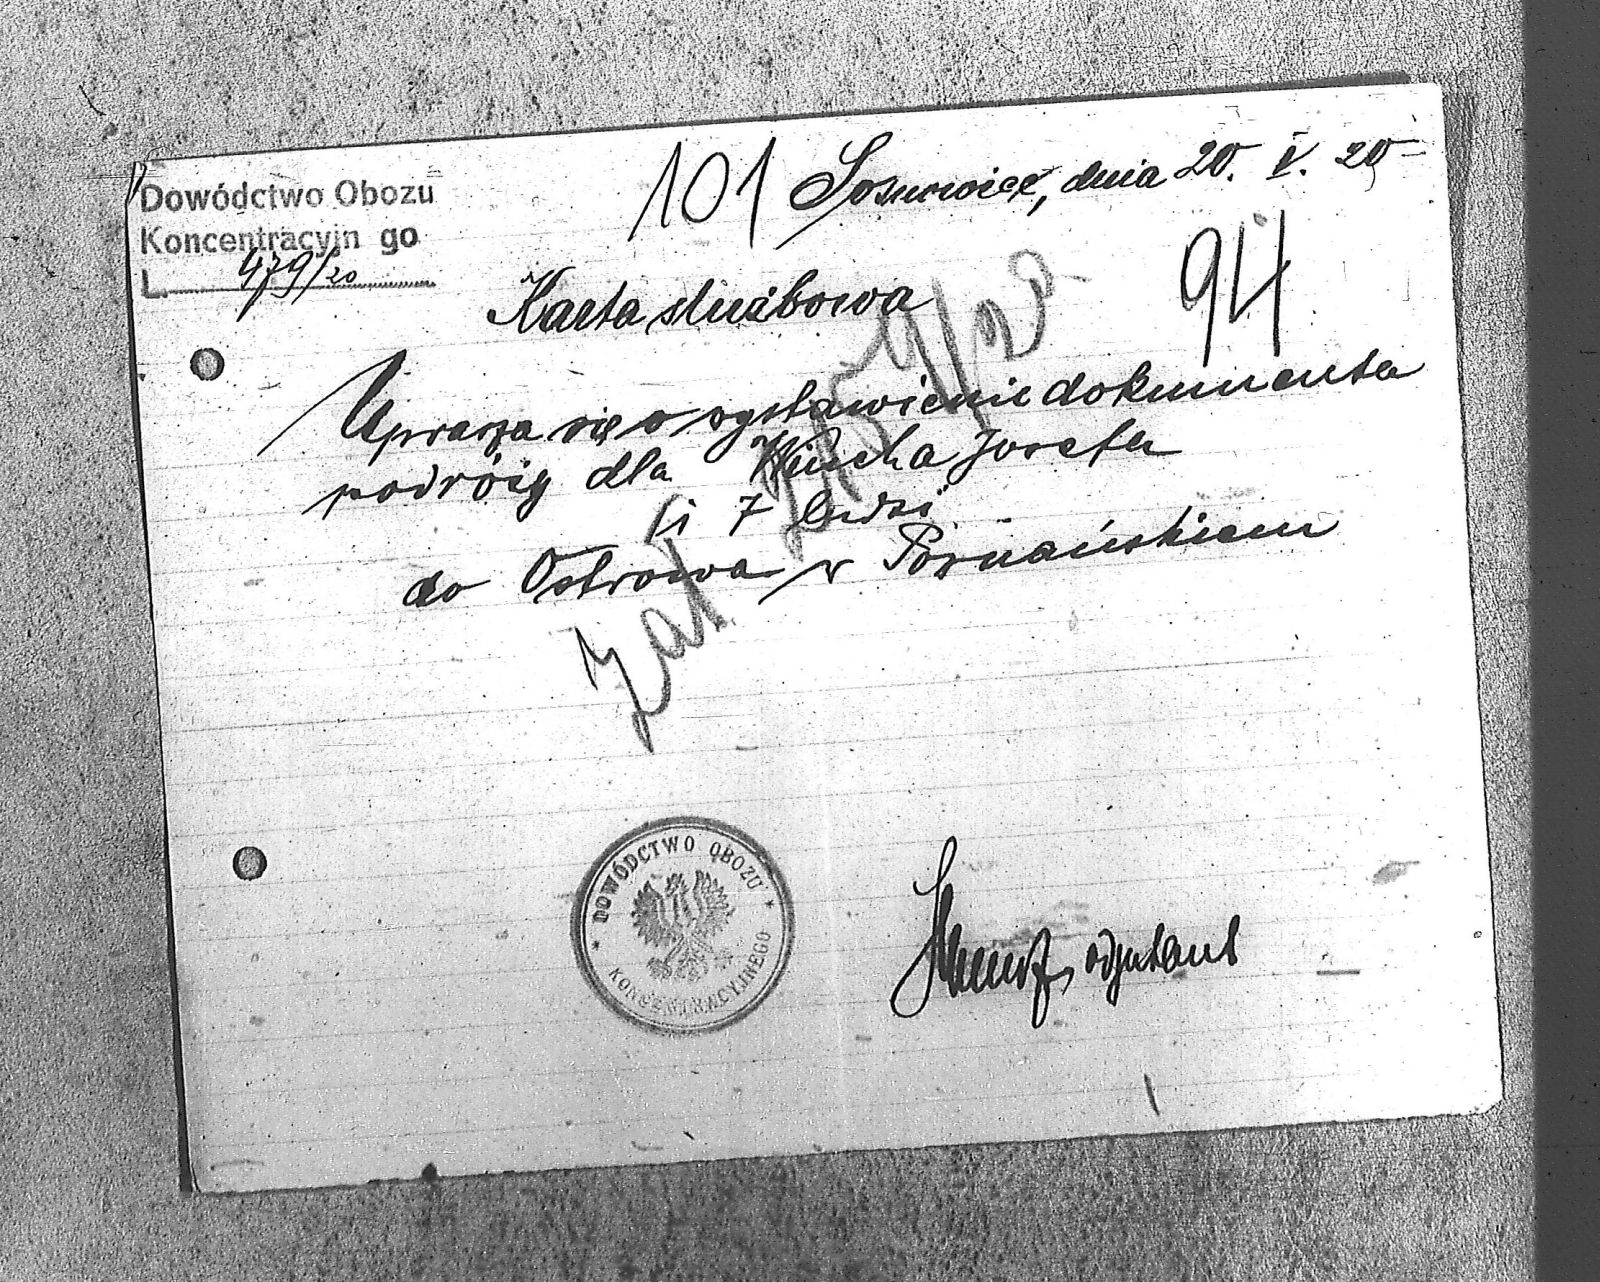 Dowództwo Obozu
Koncentracyjn go
L. 479/20
101 Sosnowice, dnia 20. V. 20
94
Karta służbowa
Uprasza się o wystawienie dokumentu
podróży dla Józefa
i 7 ludzi
do Ostrowa w Poznańskiem
Zał
DOWÓDCTWO OBOZU
KONCENTRACYJNEGO
adjutant